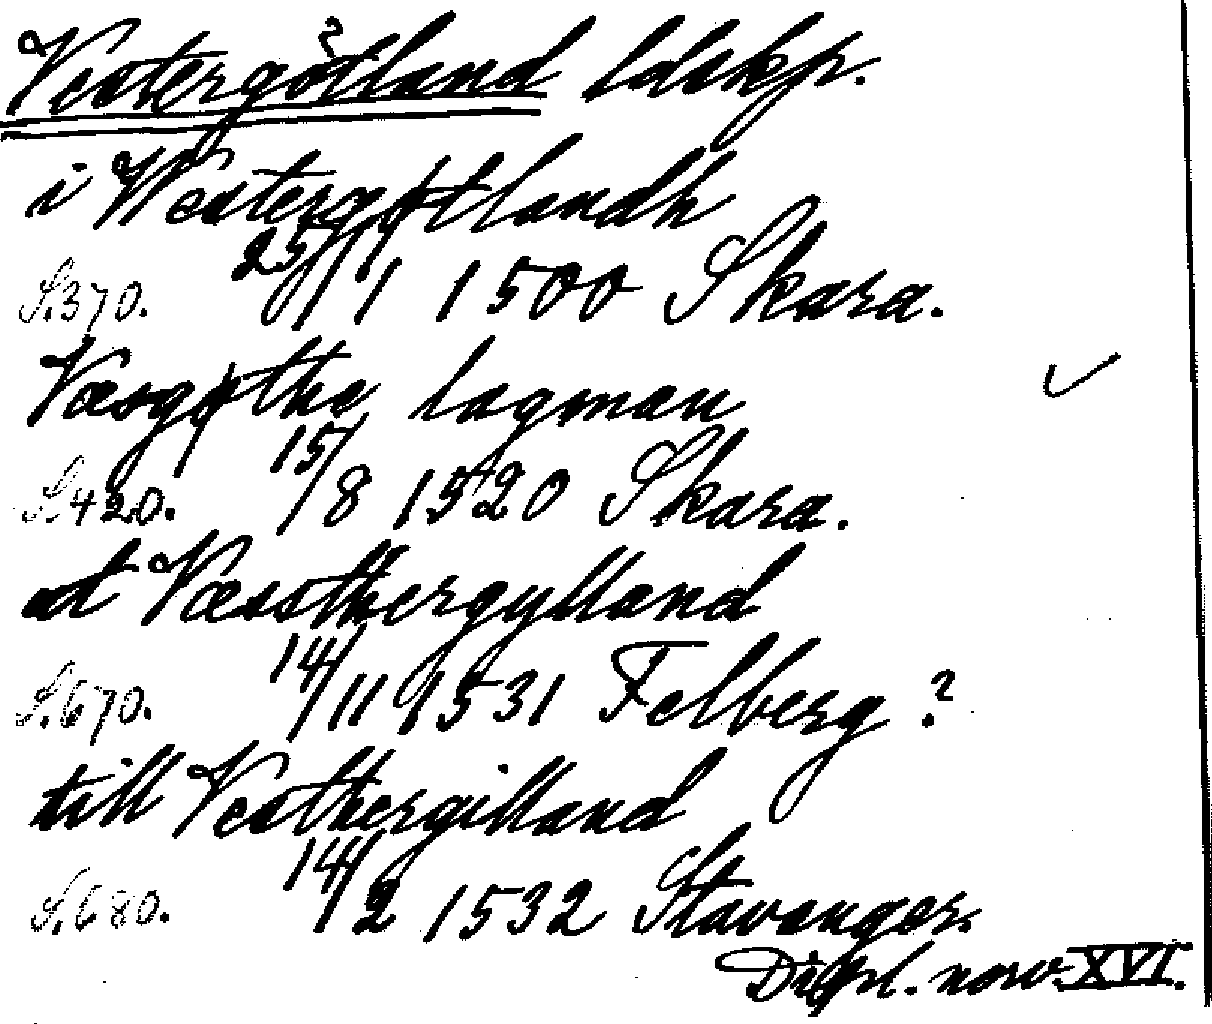 Vestergötland ldskp.
i Westergøtlandh
S.370. 25/1 1500 Skara.
Væsgøthe lagman
S.420. 15/8 1520 Skara.
at Væssthergylland
S.670. 14/11 1531 Felberg?
till Vesthergilland
S.680. 14/2 1532 Stavanger.
Dipl. norv. XVI.